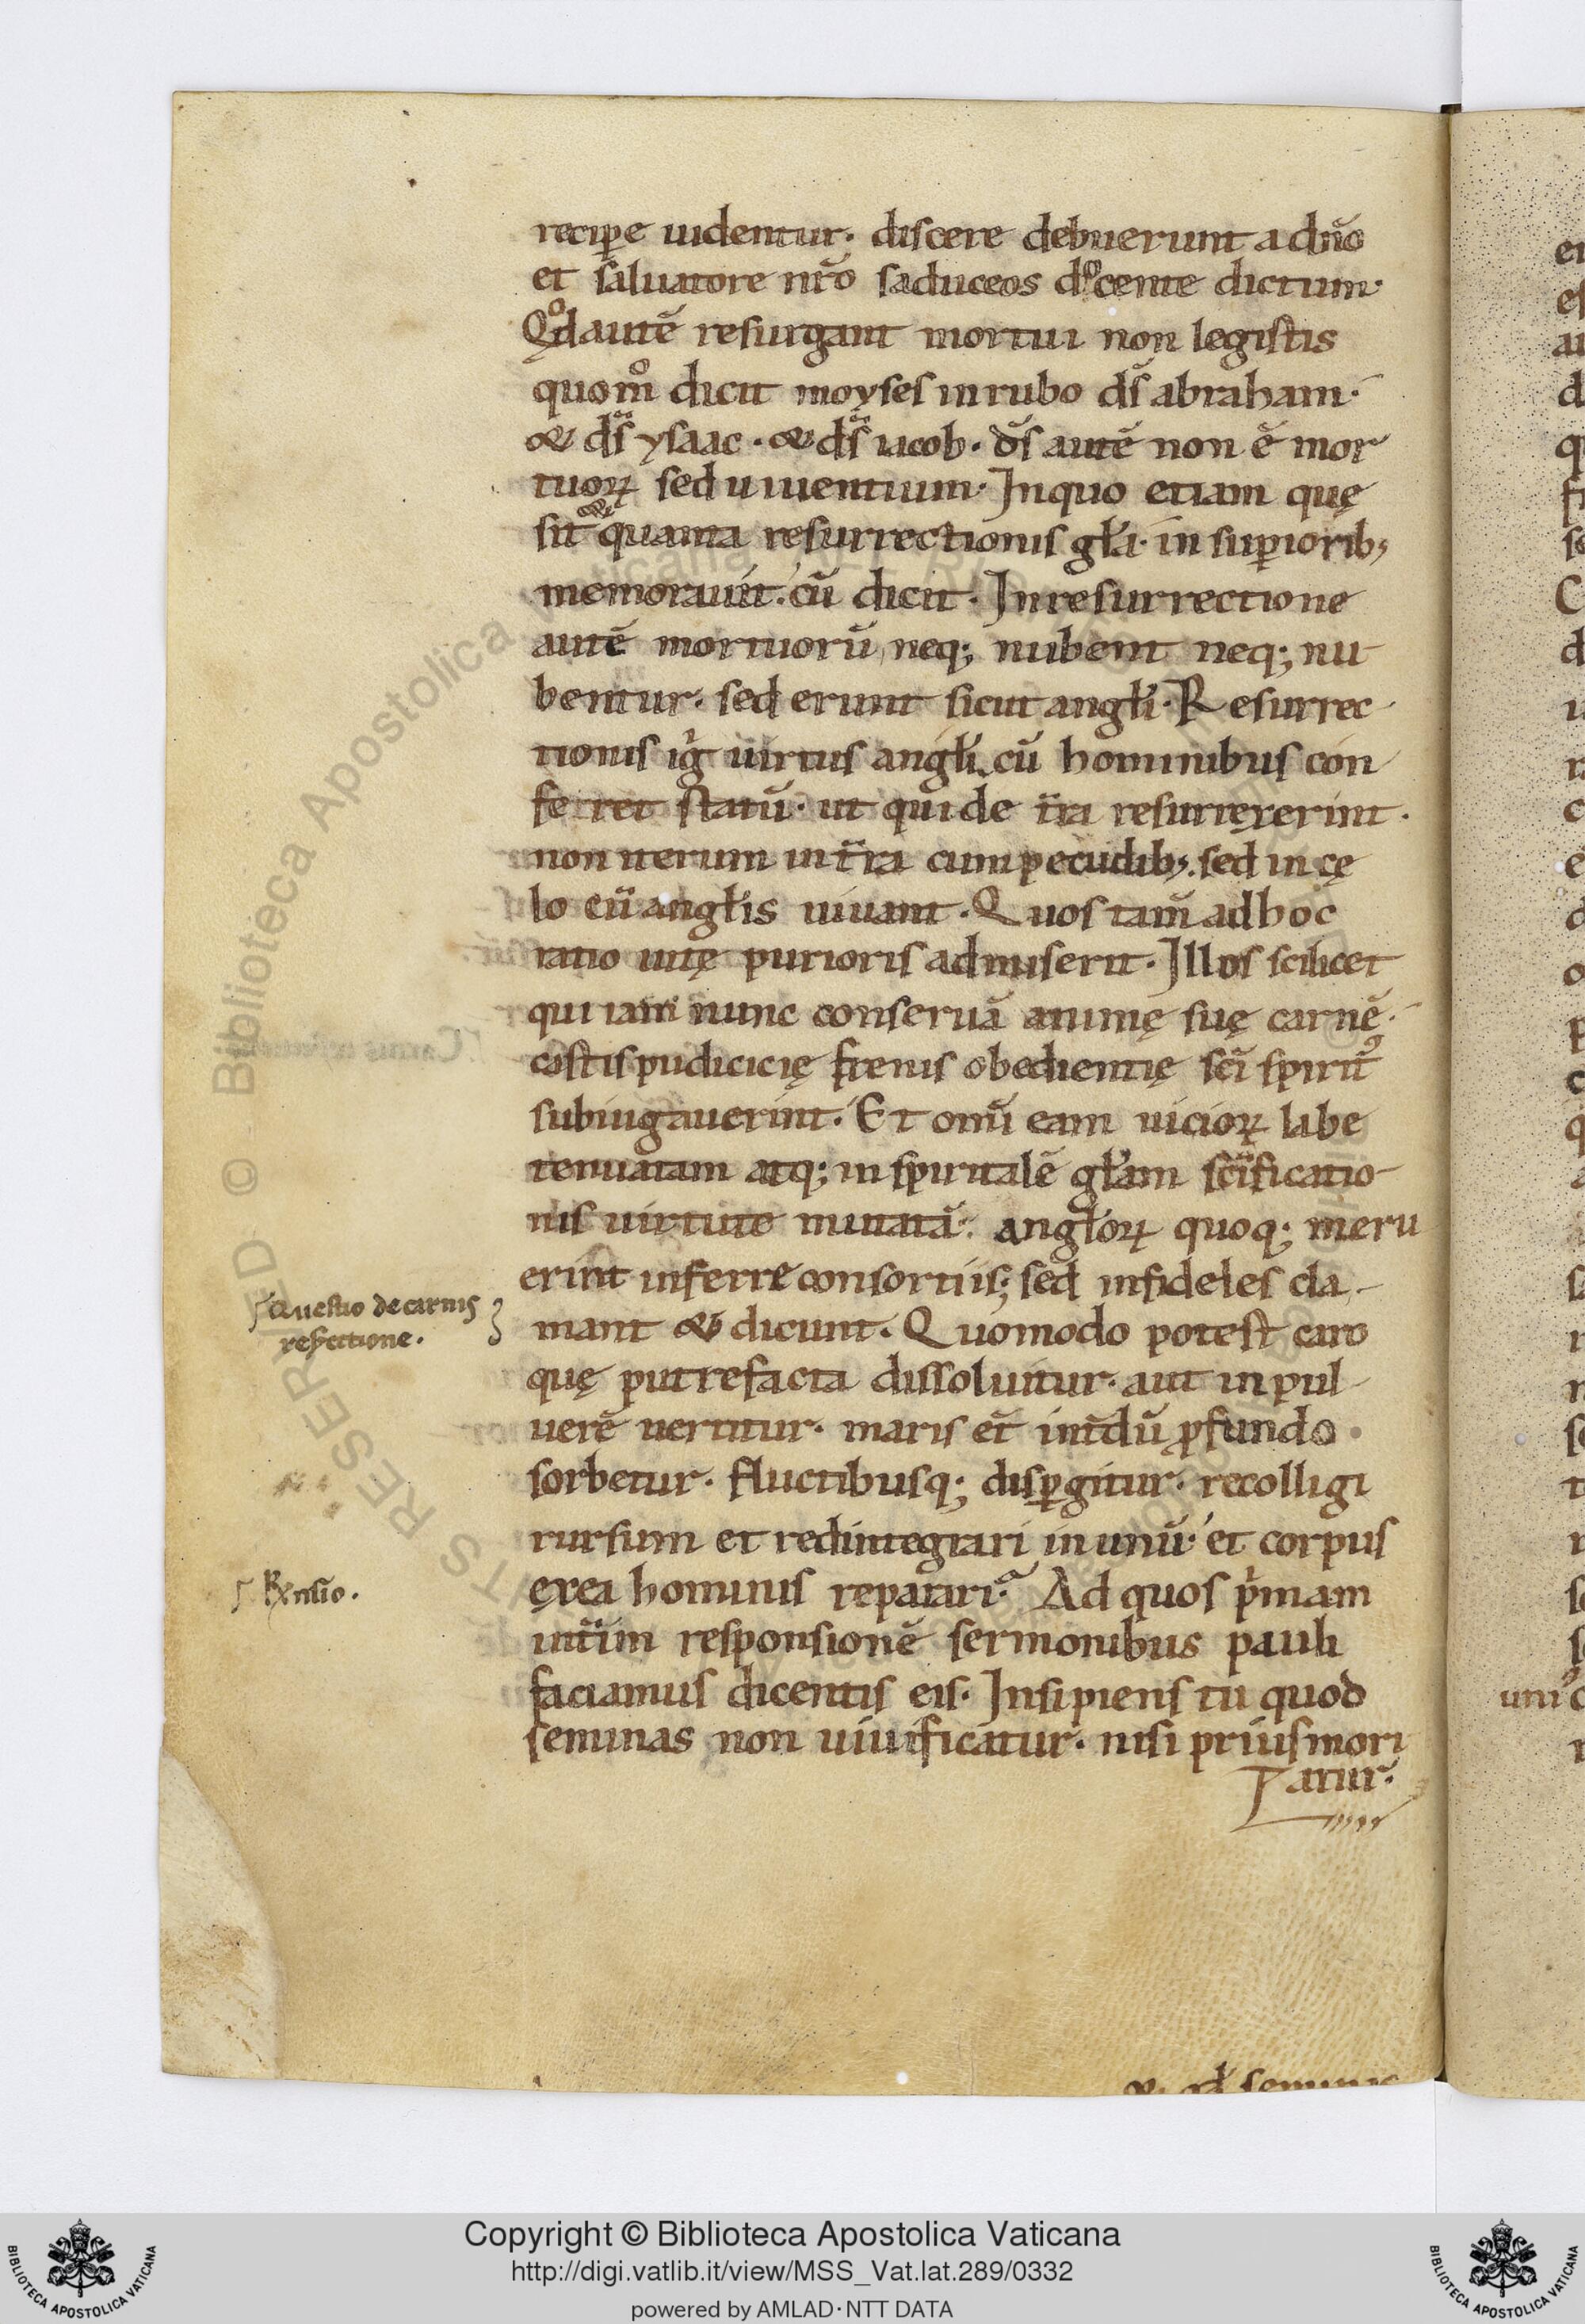 recipe uidentur· discere debuerunt a dño
et saluatore nr̃o saduceos docente dictum·
Qd autē resurgant mortui non legistis
quom̊ dicit moyses in rubo ds̃ abraham·
& ds̃ ysaac · & ds̃ iacob · ds̃ autē non ē mor
tuoꝝ sed uiuentium· In quo etiam quę
sit & quanta resurrectionis gl̃a· in supiorib;
memorauit· cū dicit · In resurrectione
autē mortuorū neq; nubent neq; nu
bentur· sed erunt sicut angl̃i· Resurrec
tionis ig̃ uirtus angl̃i cū hominibus con
ferret statū· ut qui de t̃ra resurrexerint ·
non uerum in t̃ra cum pecudib;· sed in cę
lo cū angl̃is uiuant · Quos tam̃ ad hoc
ratio uitę purioris admiserit · Illos scilicet
qui iam nunc conseruā animę suę carnē·
castis pudicicię frenis obedientię sc̃i spirit᾽
subiugauerint· Et omi̅ eam uicioꝝ labe
tenuatam atq; in spiritalē gl̃am sc̃ificatio
nis uirtute mutatā· angl̃oꝝ quoq; meru
erint inferre consortiis; sed infideles cla
mant & dicunt · Quomodo potest caro
quę putrefacta dissoluitur· aut in pul
uerē uertitur· maris et̃ int̃dū ꝓfundo ·
sorbetur· fluctibusq; disꝑgitur· recolligi
rursum et redintegrari in unū· et corpus
ex ea hominis reparari· Ad quos pmam
int̃im responsionē sermonibus pauli
faciamus dicentis eis· Insipiens tu quod
seminas non uiuificatur· nisi prius mori
atur·
Questio de carnis
refectione·
Rx̃nsio·
seminas
Copyright © Biblioteca Apostolica Vaticana
http://digi.vatlib.it/view/MSS_Vat.lat.289/0332
powered by AMLAD·NTT DATA
BIBLIOTECA APOSTOLICA VATICANA
BIBLIOTECA APOSTOLICA VATICANA